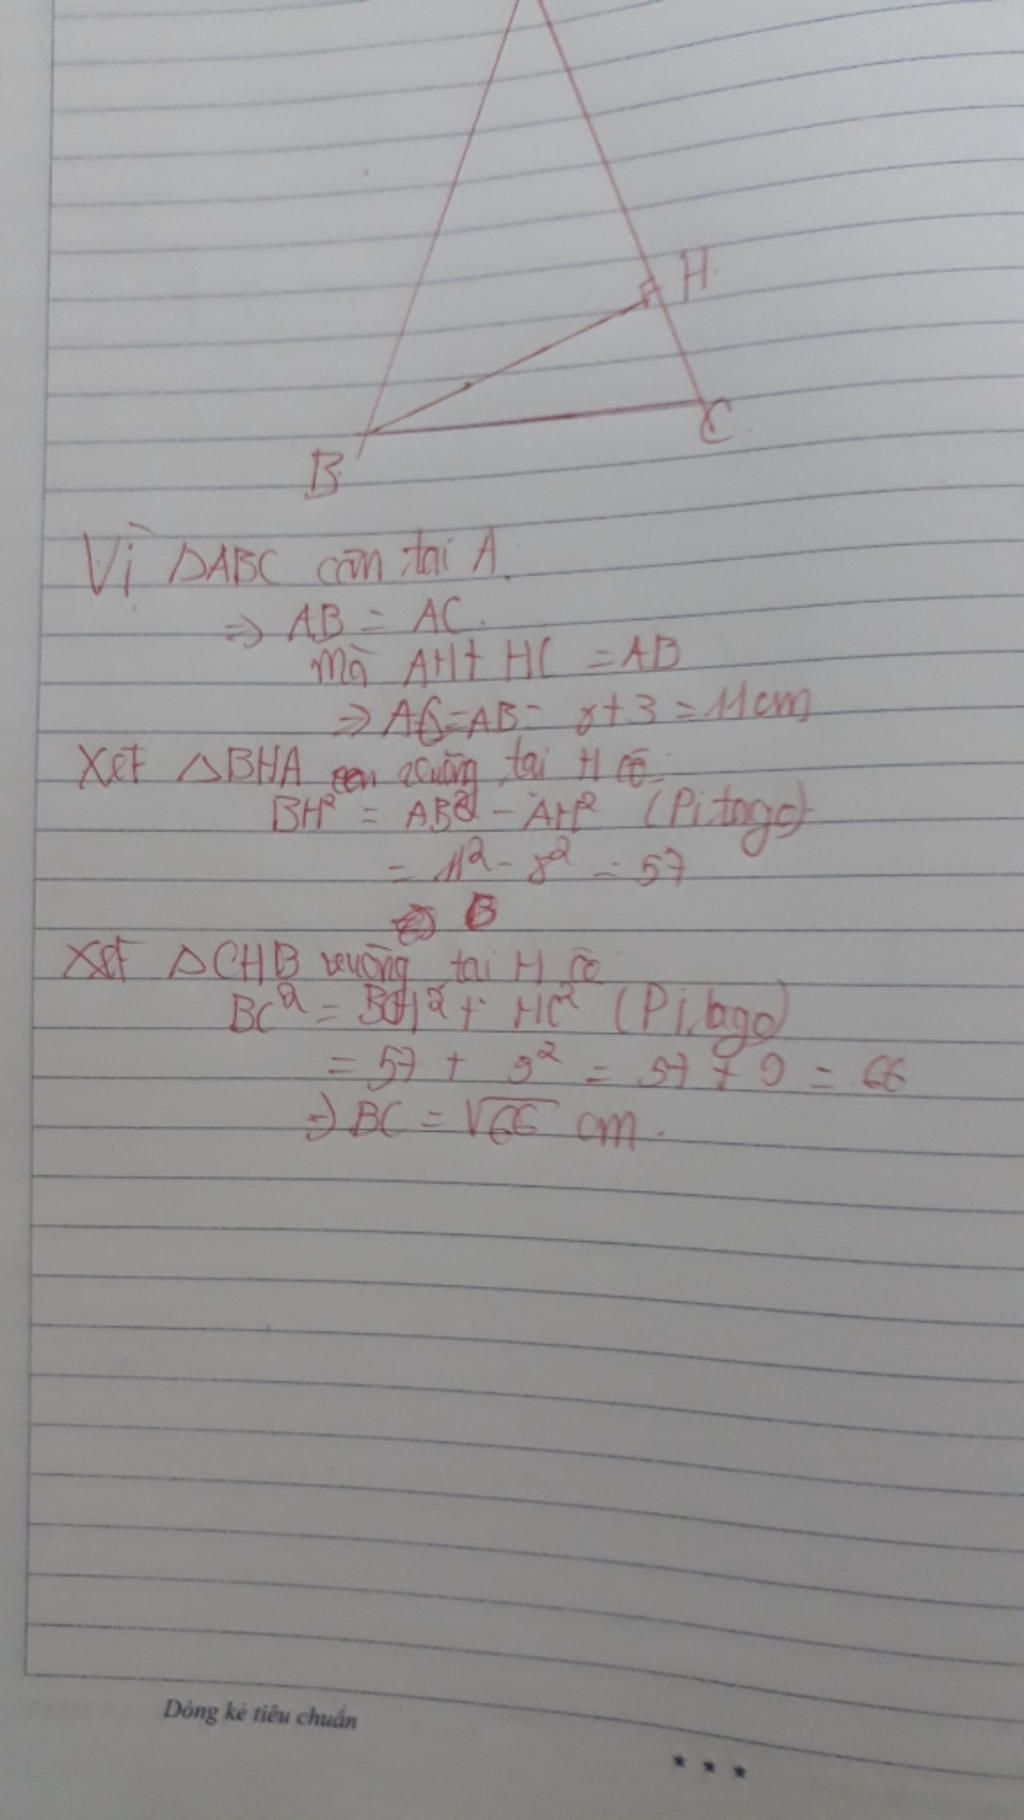 H
C
B
Vì ΔABC cân tại A.
⇒ AB = AC.
mà AH + HC = AB
⇒ AC = AB = 8 + 3 = 11cm
Xét ΔBHA vuông tại H có
BH² = AB² - AH² (Pitago)
= 11² - 8² = 57
B
Xét ΔCHB vuông tại H có
BC² = BH² + HC² (Pitago)
= 57 + 3² = 57 + 9 = 66
⇒ BC = √66 cm.
Dòng kẻ tiêu chuẩn
★ ★ ★